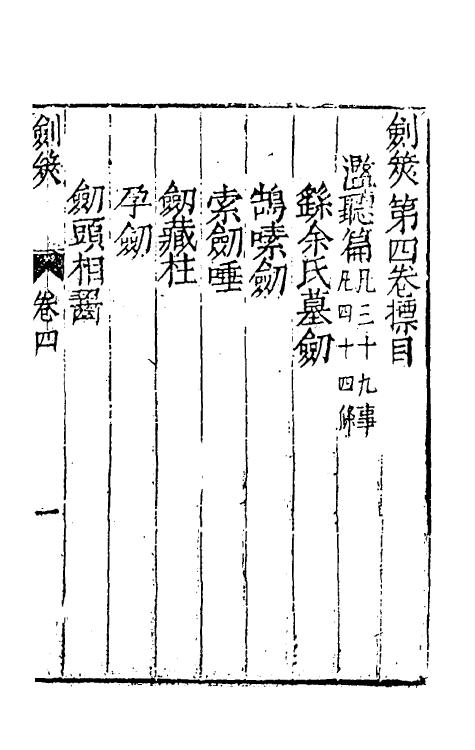 劍筴第四卷標目
聽篇凡三十九事
凡四十四條
繇余氏墓劒
鵠嗉劒
索劒唾
劒藏柱
孕劒
劒頭相齧
劍筴 卷四 一